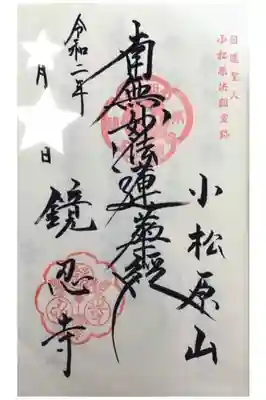 日蓮聖人
小松原法難霊跡
小松原山
南無妙法蓮華経
鏡忍寺
令和二年
月
日